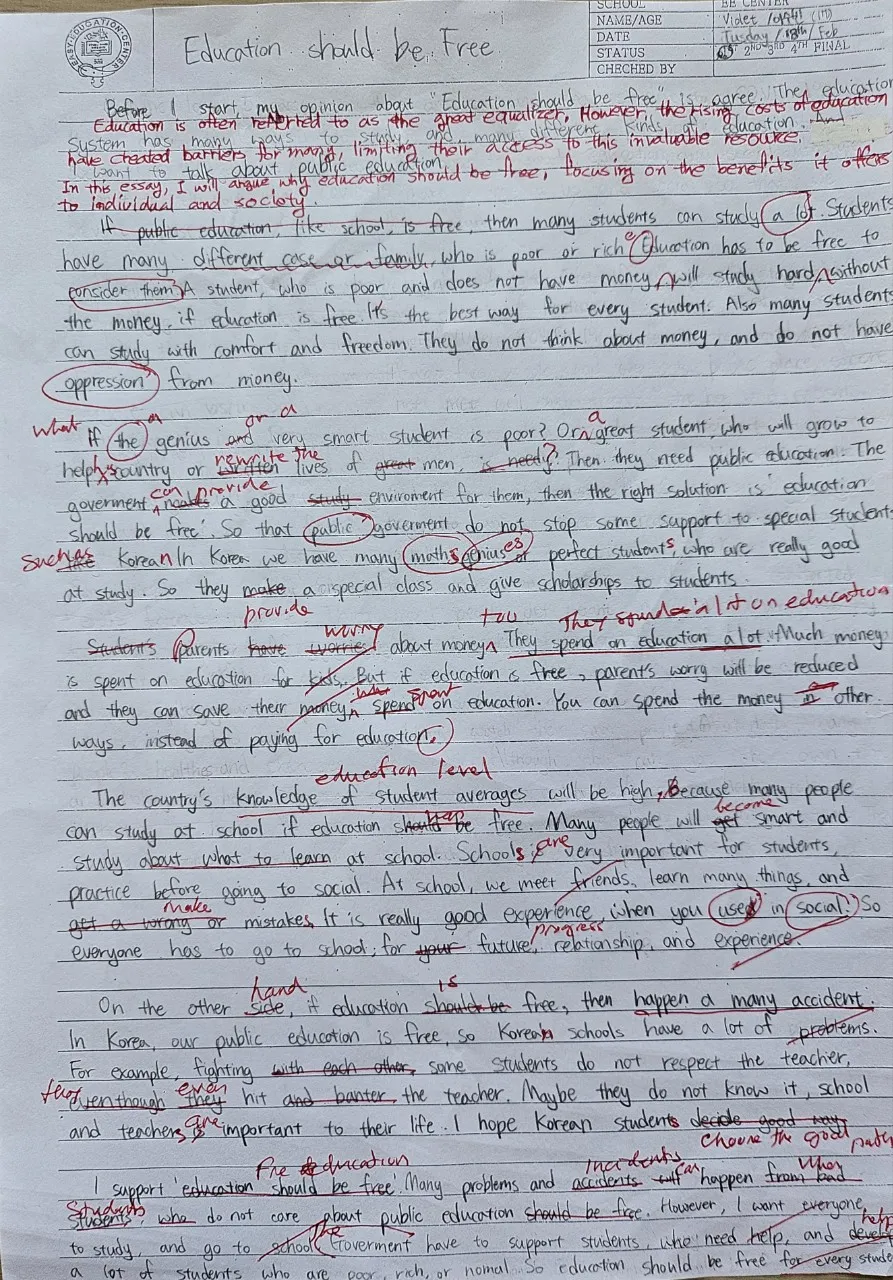 EASY·EDUCATION·CENTER
SCHOOL BE CENTER
NAME/AGE Violet
DATE Tusday / 18th / Feb
STATUS 2ND 3RD 4TH FINAL
CHECHED BY
Education should be Free
Before I start, my opinion about "Education should be free" is agree. The education
Education is often referred to as the great equalizer. However, the rising costs of education
System has many ways to study and many different kinds of education. And
have created barriers for many, limiting their access to this invaluable resource.
I want to talk about public education.
In this essay, I will argue why education should be free, focusing on the benefits it offers
to individual and society.
If public education, like school, is free, then many students can study a lot. Students
have many different case or family, who is poor or rich. Education has to be free to
consider them. A student, who is poor and does not have money, will study hard, without
the money, if education is free. It's the best way for every student. Also many students
can study with comfort and freedom. They do not think about money, and do not have
oppression from money.
What a or a a
If the genius and very smart student is poor? Or great student, who will grow to
rewrite the
help country or written lives of great men, is need? Then they need public education. The
can provide
goverment needs a good study enviroment for them, then the right solution is 'education
should be free'. So that public goverment do not stop some support to special student
Such as like Korean In Korea we have many maths geniuses or perfect students, who are really good
at study. So they make a special class and give scholarships to students.
provide worry too They spend a lot on education
Student's Parents have worried about money. They spend on education a lot. Much money
is spent on education for kids. But if education is free, parent's worry will be reduced
what spent
and they can save their money, spend on education. You can spend the money in other
ways, instead of paying for education.
education level
The country's knowledge of student averages will be high, Because many people
become
can study at school if education should be free. Many people will get smart and
are
study about what to learn at school. Schools very important for students,
practice before going to social. At school, we meet friends, learn many things, and
make
get a wrong or mistakes. It is really good experience, when you used in social. So
progress
everyone has to go to school, for your future, relationship, and experience.
hand is
On the other side, if education should be free, then happen a many accident.
In Korea, our public education is free, so Korean schools have a lot of problems.
For example, fighting with each other, some students do not respect the teacher,
they even
eventhough they hit and banter the teacher. Maybe they do not know it, school
are
and teachers important to their life. I hope Korean students decide good way
choose the good path
Free education incidents can when
I support 'education should be free'. Many problems and accidents will happen from bad
Students
students, who do not care about public education should be free. However, I want everyone,
The help
to study, and go to school. Goverment have to support students, who need help, and develop
a lot of students who are poor, rich, or nomal. So education should be free for every stude